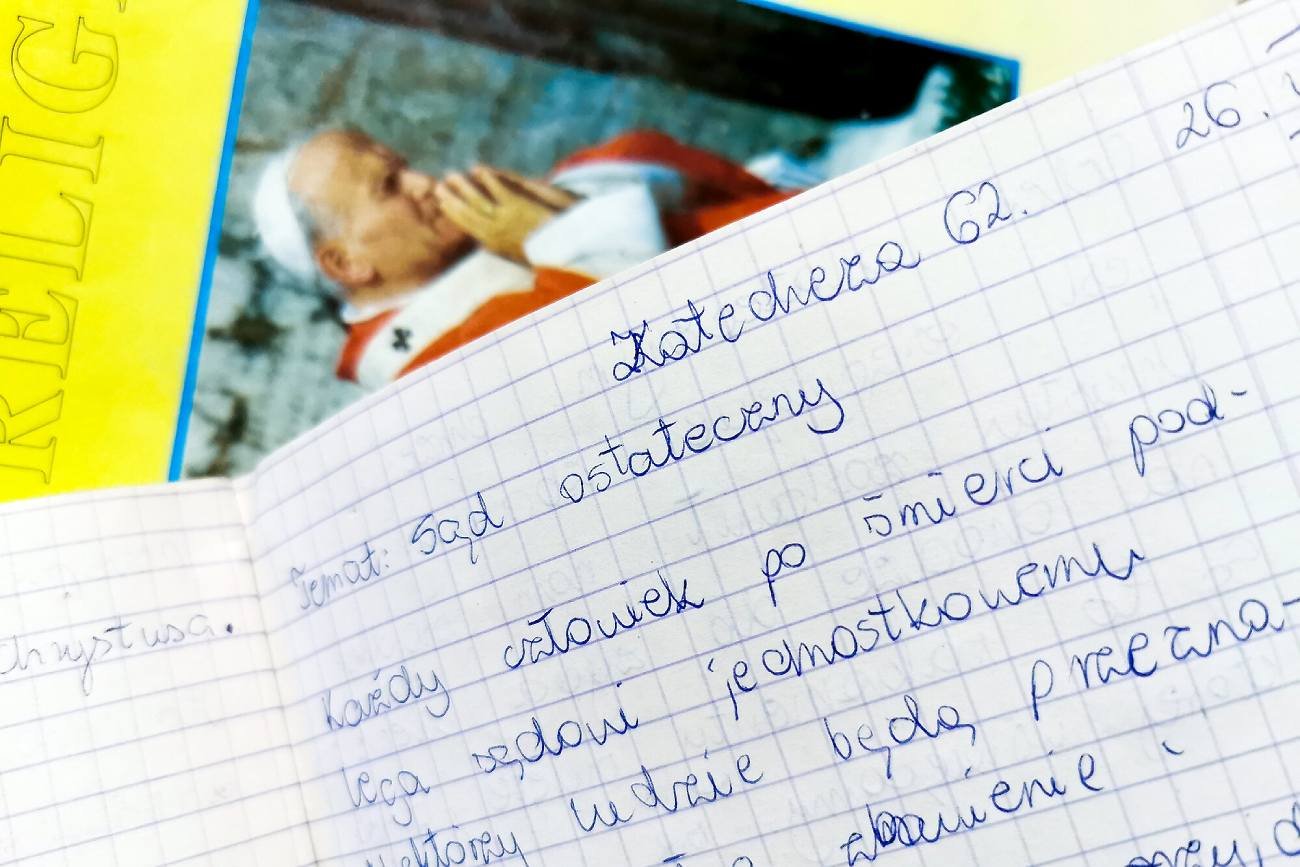 RELIG
26.
Katecheza 62.
Temat: Sąd ostateczny
Każdy człowiek po śmierci pod-
lega sądowi jednostkowemu
Niektórzy ludzie będą przezna-
zbawienie i
Chrystusa.